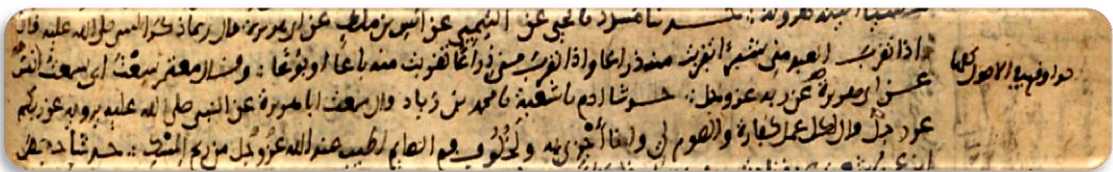 هرولة حدثنا مسدد نا يحيى عن التيمي عن انس بن ملك عن ابي هريرة قال ربما ذكر النبي صلى الله عليه قال
اذا تقرب العبد مني شبرا تقربت منه ذراعا واذا تقرب مني ذراعا تقربت منه باعا او بوعا وقال معتمر سمعت ابي سمعت انس
عن ابي هريرة عن ربه عز وجل حدثنا ادم نا شعبة نا محمد بن زياد قال سمعت ابا هريرة عن النبي صلى الله عليه يرويه عن ربكم
عز وجل قال لكل عمل كفارة والصوم لي وانا أجزي به ولخُلُوف فم الصايم اطيب عند الله عز وجل من ريح المسك حدثنا حفص
الاصول كلها